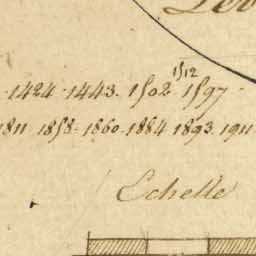 1512
1424 · 1443 · 1502 · 1597 ·
1811 · 1858 · 1860 · 1884 · 1893 · 1911
Echelle